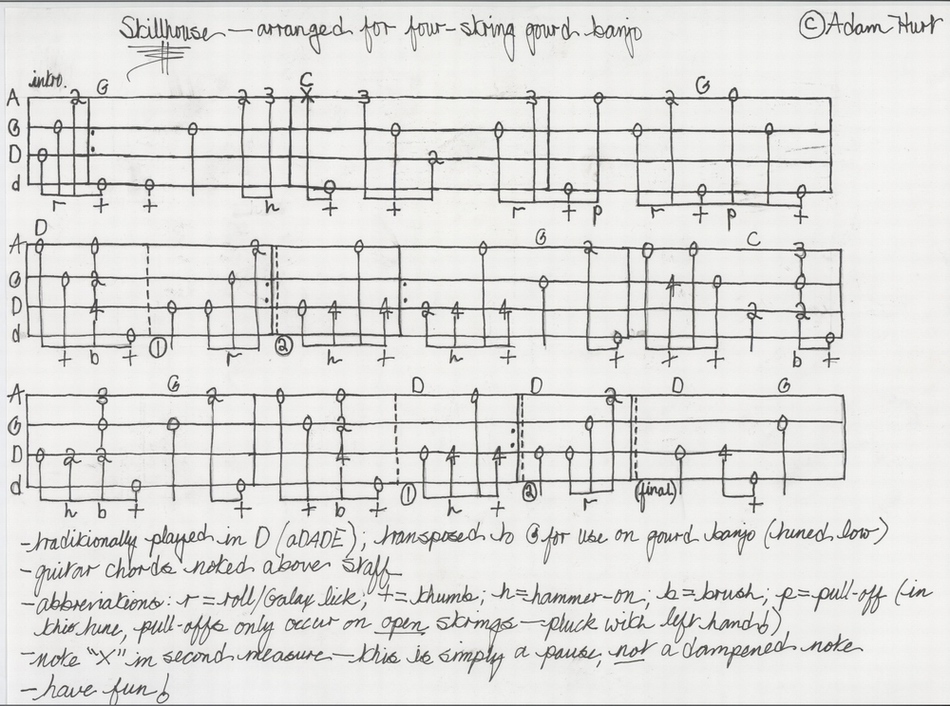 Stillhouse — arranged for four-string gourd banjo ©Adam Hurt
intro. G C G
A 2 2 3 X 3 3 0 2 0
G 0 0 0 0 0 0
D 0 2
d 0 0 0 0 0 0
r + + h + + r + p r + p +
D G C
A 0 0 2 0 0 2 0 0 3
G 0 2 0 0 4 0 0
D 4 0 0 0 4 4 2 4 4 2 2
d 0 0 0
+ b + ① r ② h + h + + + + b +
G D D D G
A 3 2 0 0 0 2
G 0 0 0 2 0 0
D 0 2 2 4 0 4 4 0 0 0 4
d 0 0 0 0
h b + + + b + ① h + ② r (final) +
-traditionally played in D (aDADE); transposed to G for use on gourd banjo (tuned low)
-guitar chords noted above staff
-abbreviations: r=roll/Galax lick; +=thumb; h=hammer-on; b=brush; p=pull-off (in
this tune, pull-offs only occur on open strings — pluck with left hand!)
-note "X" in second measure — this is simply a pause, not a dampened note
-have fun!